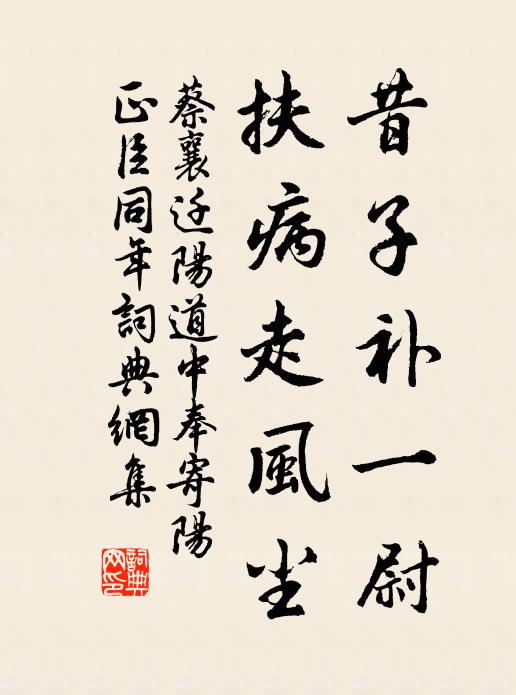 昔子补一尉
扶病走風尘
蔡襄迁陽道中奉寄陽
正臣同年詞典網集
詞典網印